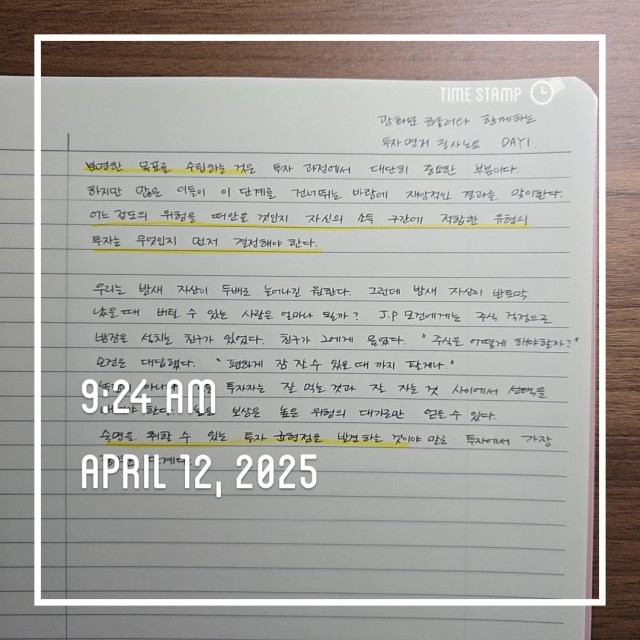 TIME STAMP
광화문 금융러다 함께하는
투자명저 필사노트 DAY1.
분명한 목표를 수립하는 것은 투자 과정에서 대단히 중요한 부분이다.
하지만 많은 이들이 이 단계를 건너뛰는 바람에 재앙적인 결과를 맞이한다.
어느 정도의 위험을 떠안을 것인지 자신의 소득 구간에 적합한 유형의
투자는 무엇인지 먼저 결정해야 한다.
우리는 밤새 자산이 두배로 늘어나길 원한다. 그런데 밤새 자산이 반토막
났을 때 버틸 수 있는 사람은 얼마나 될까? J.P 모건에게는 주식 걱정으로
밤잠을 설치는 친구가 있었다. 친구가 그에게 물었다. "주식을 어떻게 해야할까?"
모건은 대답했다. "편하게 잠 잘 수 있을 때 까지 팔게나."
아니 투자자는 잘 먹는 것과 잘 자는 것 사이에서 선택을
9:24 AM
한다. 높은 보상은 높은 위험의 대가로만 얻을 수 있다.
숙면을 취할 수 있는 투자 균형점을 발견하는 것이야 말로 투자에서 가장
APRIL 12, 2025